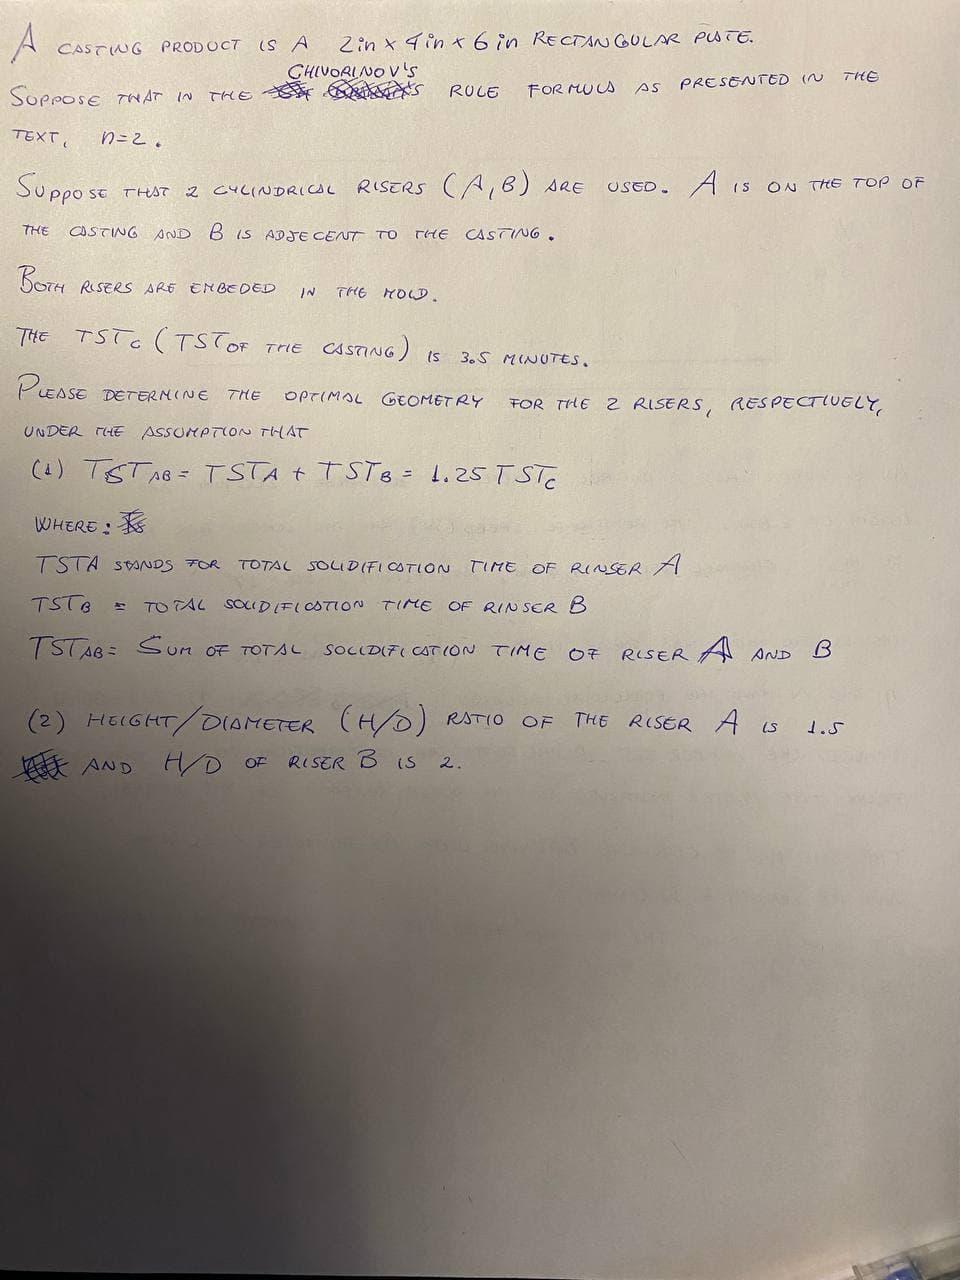 A CASTING PRODUCT IS A 2in x 4in x 6in RECTANGULAR PLATE.
CHIVORINOV'S
SUPPOSE THAT IN THE RULE FORMULA AS PRESENTED IN THE
TEXT, n=2.
SUPPOSE THAT 2 CYLINDRICAL RISERS (A,B) ARE USED. A IS ON THE TOP OF
THE CASTING AND B IS ADJECENT TO THE CASTING.
BOTH RISERS ARE EMBEDED IN THE MOLD.
THE TSTC (TST OF THE CASTING) IS 3.5 MINUTES.
PLEASE DETERMINE THE OPTIMAL GEOMETRY FOR THE 2 RISERS, RESPECTIVELY,
UNDER THE ASSUMPTION THAT
(1) TSTAB = TSTA + TSTB = 1.25 TSTC
WHERE:
TSTA STANDS FOR TOTAL SOLIDIFICATION TIME OF RINSER A
TSTB = TOTAL SOLIDIFICATION TIME OF RINSER B
TSTAB = SUM OF TOTAL SOLIDIFICATION TIME OF RISER A AND B
(2) HEIGHT/DIAMETER (H/D) RATIO OF THE RISER A IS 1.5
AND H/D OF RISER B IS 2.